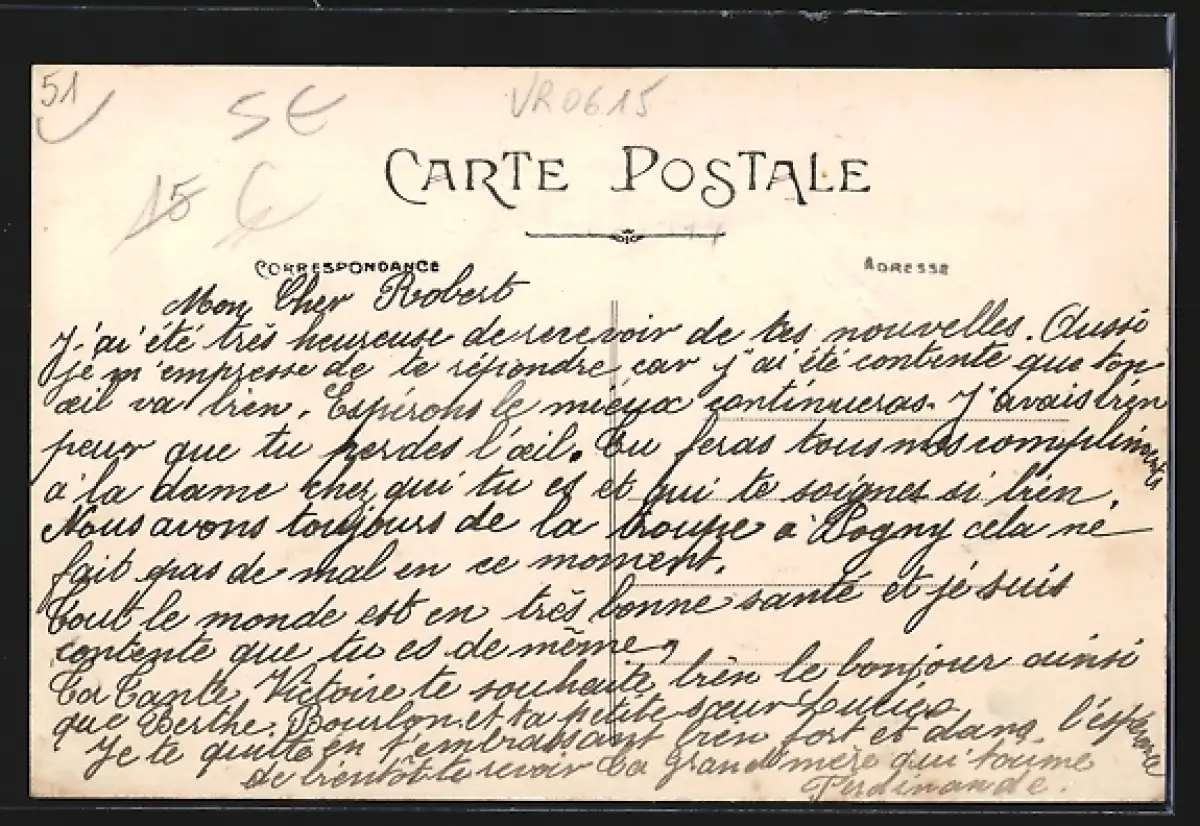 51
5 €
VR0615
15
CARTE POSTALE
CORRESPONDANCE
ADRESSE
Mon Cher Robert
J'ai été très heureuse de recevoir de tes nouvelles. Aussi
je m'empresse de te répondre car j'ai été contente que ton
œil va bien. Espérons le mieux continueras. J'avais bien
peur que tu perdes l'œil. Tu feras tous mes compliments
à la dame chez qui tu es et qui te soignes si bien.
Nous avons toujours de la troupe à Pogny cela ne
fait pas de mal en ce moment.
Tout le monde est en très bonne santé et je suis
contente que tu es de même,
Ta Tante Victoire te souhaite bien le bonjour ainsi
que Berthe Bourlon et ta petite sœur Lucie
Je te quitte en t'embrassant bien fort et dans l'espérance
de bientôt te revoir Ta Grand mère qui t'aime
Ferdinande.